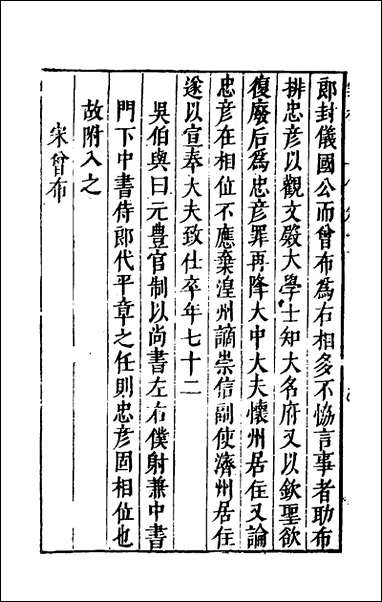 郎封儀國公而曾布為右相多不恊言事者助布
排忠彥以觀文殿大學士知大名府又以欽聖欲
復廢后為忠彥罪再降大中大夫懷州居住又論
忠彥在相位不應棄湟州謫崇信副使濟州居住
遂以宣奉大夫致仕卒年七十二
吳伯與曰元豊官制以尚書左右僕射兼中書
門下中書侍郎代平章之任則忠彥固相位也
故附入之
宋曾布